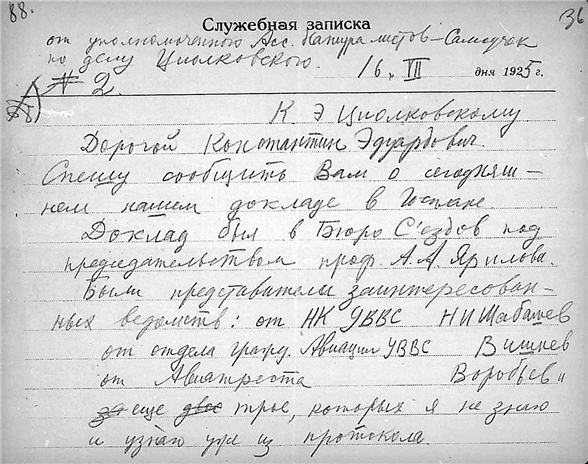 88.
36
Служебная записка
от уполномоченного Асс. Натуралистов – Самоучек
по делу Циолковского. 16. VII дня 1925 г.
№ 2.
К Э Циолковскому
Дорогой Константин Эдуардович.
Спешу сообщить Вам о сегодняш –
нем нашем докладе в Госплане.
Доклад был в Бюро С'ездов под
председательством проф. А. А. Ярилова.
Были представители заинтересован-
ных ведомств: от НК УВВС Н И Шабашев
от отдела гражд. Авиации УВВС Вишнев
от Авиатреста Воробьев и
еще трое, которых я не знаю
и узнаю уже из протокола.